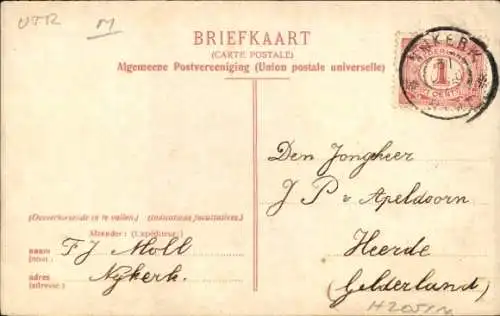 UTR M
BRIEFKAART
(CARTE POSTALE)
Algemeene Postvereeniging (Union postale universelle)
NIJKERK
1
Den Jongheer
J P v Apeldoorn
Heerde
(Gelderland)
(Onverkorte in te vullen.) (Indications facultatives.)
Afzender: (Expéditeur:)
naam
(nom:
F J Moll
adres
(adresse:)
Nykerk.
H2051M